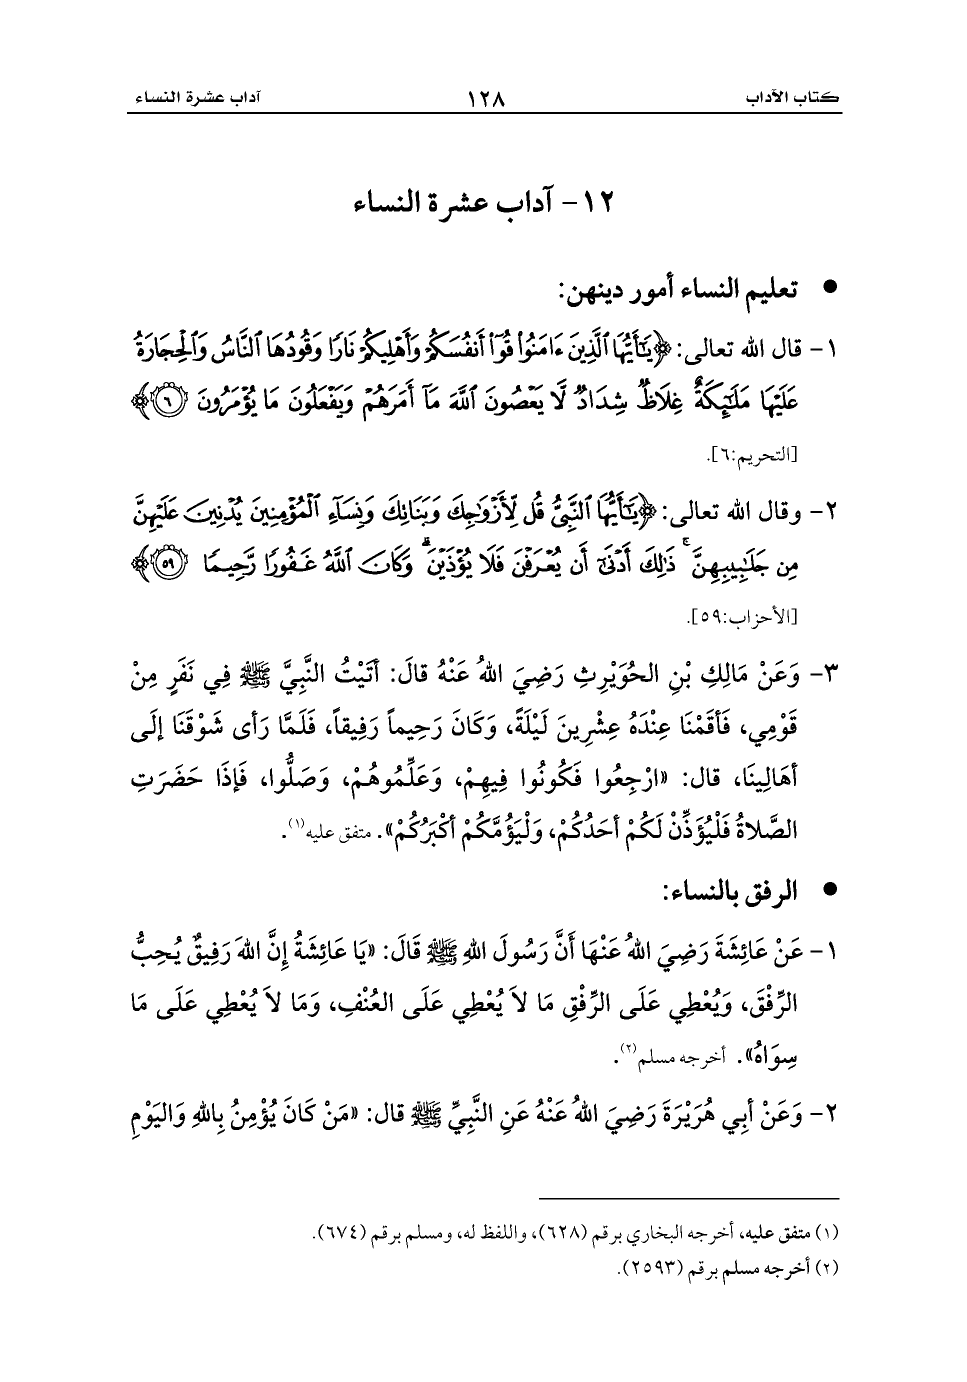 كتاب الآداب ١٢٨ آداب عشرة النساء
١٢- آداب عشرة النساء
● تعليم النساء أمور دينهن:
١- قال الله تعالى: ﴿يَـٰٓأَيُّهَا ٱلَّذِينَ ءَامَنُوا۟ قُوٓا۟ أَنفُسَكُمْ وَأَهْلِيكُمْ نَارًا وَقُودُهَا ٱلنَّاسُ وَٱلْحِجَارَةُ
عَلَيْهَا مَلَـٰٓئِكَةٌ غِلَاظٌ شِدَادٌ لَّا يَعْصُونَ ٱللَّهَ مَآ أَمَرَهُمْ وَيَفْعَلُونَ مَا يُؤْمَرُونَ ٦﴾
[التحريم:٦].
٢- وقال الله تعالى: ﴿يَـٰٓأَيُّهَا ٱلنَّبِىُّ قُل لِّأَزْوَٰجِكَ وَبَنَاتِكَ وَنِسَآءِ ٱلْمُؤْمِنِينَ يُدْنِينَ عَلَيْهِنَّ
مِن جَلَـٰبِيبِهِنَّ ۚ ذَٰلِكَ أَدْنَىٰٓ أَن يُعْرَفْنَ فَلَا يُؤْذَيْنَ ۗ وَكَانَ ٱللَّهُ غَفُورًا رَّحِيمًا ٥٩﴾
[الأحزاب:٥٩].
٣- وَعَنْ مَالِكِ بْنِ الحُوَيْرِثِ رَضِيَ اللهُ عَنْهُ قالَ: أتَيْتُ النَّبِيَّ ﷺ فِي نَفَرٍ مِنْ
قَوْمِي، فَأقَمْنَا عِنْدَهُ عِشْرِينَ لَيْلَةً، وَكَانَ رَحِيماً رَفِيقاً، فَلَمَّا رَأى شَوْقَنَا إلَى
أهَالِينَا، قال: «ارْجِعُوا فَكُونُوا فِيهِمْ، وَعَلِّمُوهُمْ، وَصَلُّوا، فَإذَا حَضَرَتِ
الصَّلاةُ فَلْيُؤَذِّنْ لَكُمْ أحَدُكُمْ، وَلْيَؤُمَّكُمْ أكْبَرُكُمْ». متفق عليه(١).
● الرفق بالنساء:
١- عَنْ عَائِشَةَ رَضِيَ اللهُ عَنْهَا أَنَّ رَسُولَ اللهِ ﷺ قَالَ: «يَا عَائِشَةُ إِنَّ اللهَ رَفِيقٌ يُحِبُّ
الرِّفْقَ، وَيُعْطِي عَلَى الرِّفْقِ مَا لاَ يُعْطِي عَلَى العُنْفِ، وَمَا لاَ يُعْطِي عَلَى مَا
سِوَاهُ». أخرجه مسلم(٢).
٢- وَعَنْ أبِي هُرَيْرَةَ رَضِيَ اللهُ عَنْهُ عَنِ النَّبِيِّ ﷺ قال: «مَنْ كَانَ يُؤْمِنُ بِاللهِ وَاليَوْمِ
(١) متفق عليه، أخرجه البخاري برقم (٦٢٨)، واللفظ له، ومسلم برقم (٦٧٤).
(٢) أخرجه مسلم برقم (٢٥٩٣).